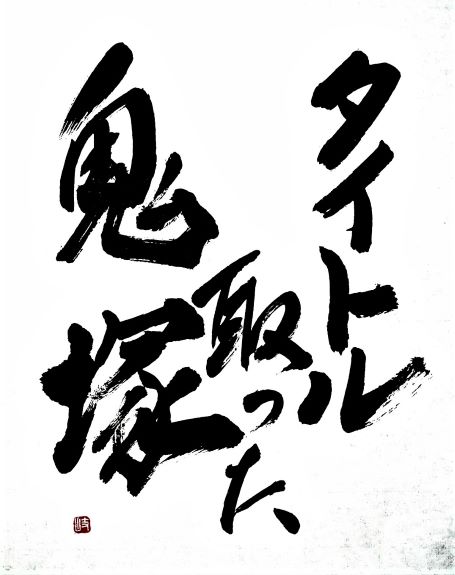 タイトル
取った
鬼塚